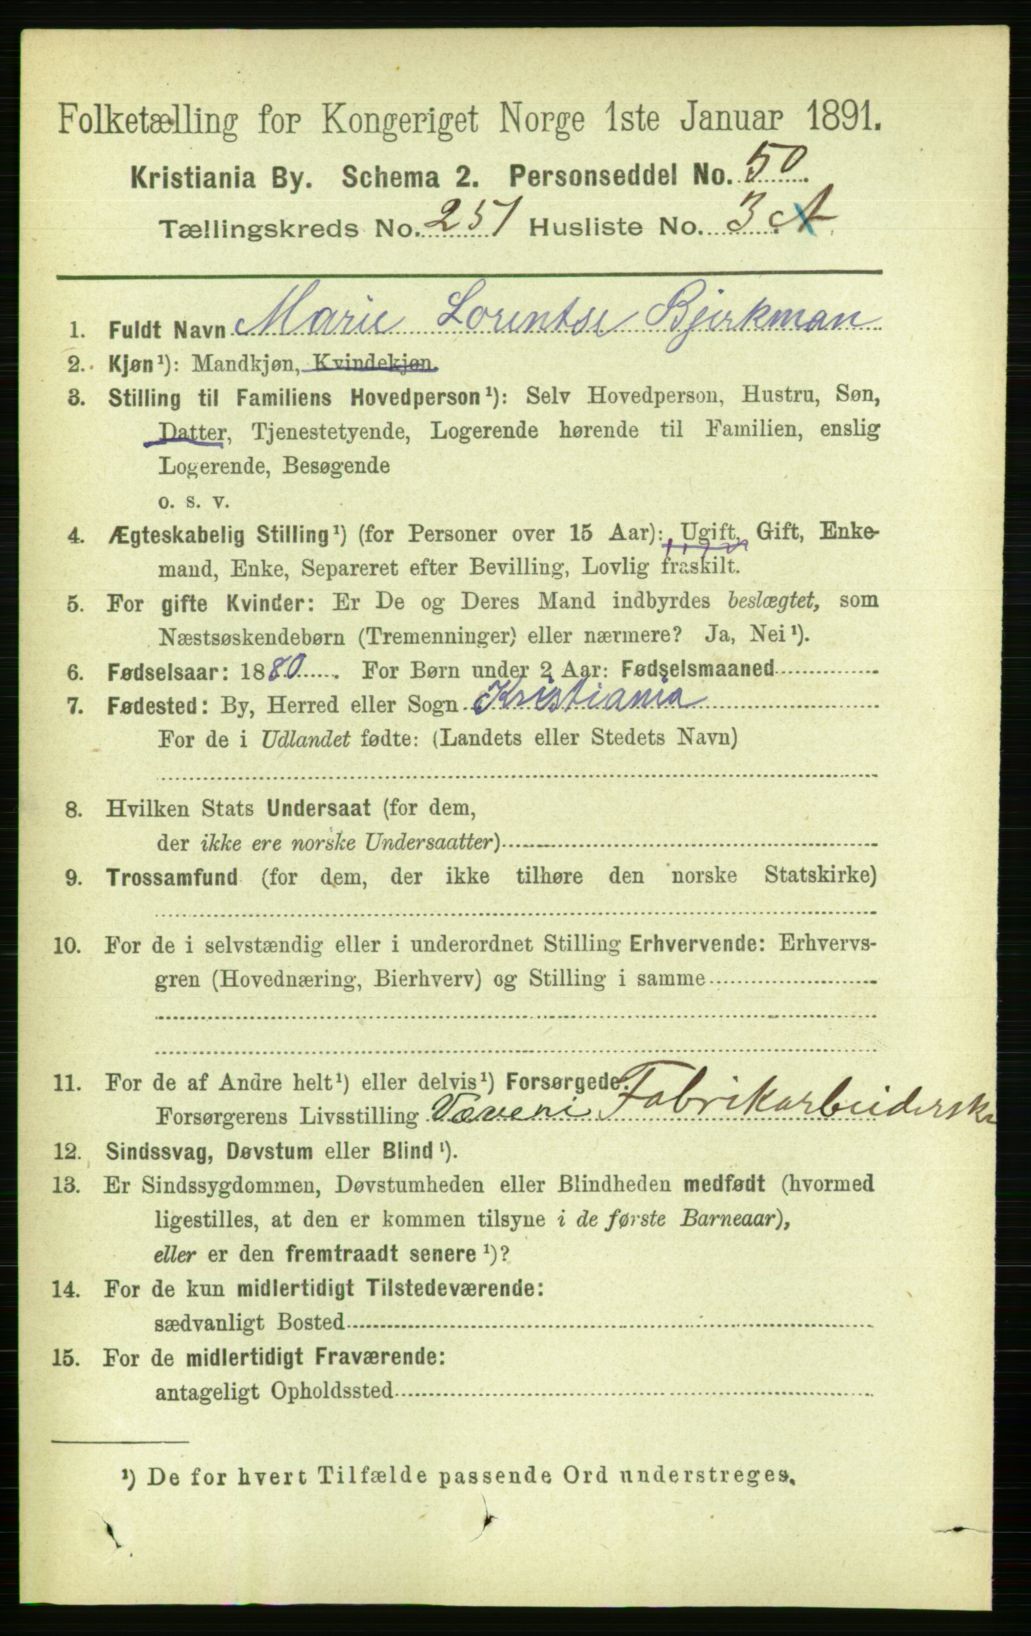 Folketælling for Kongeriget Norge 1ste Januar 1891.
Kristiania By. Schema 2. Personseddel No. 50
Tællingskreds No. 251 Husliste No. 3 A
1. Fuldt Navn Marie Lorentse Bjerkman
2. Kjøn¹): Mandkjøn, Kvindekjøn.
3. Stilling til Familiens Hovedperson¹): Selv Hovedperson, Hustru, Søn,
Datter, Tjenestetyende, Logerende hørende til Familien, enslig
Logerende, Besøgende
o. s. v.
4. Ægteskabelig Stilling¹) (for Personer over 15 Aar): Ugift, Gift, Enke-
mand, Enke, Separeret efter Bevilling, Lovlig fraskilt.
5. For gifte Kvinder: Er De og Deres Mand indbyrdes beslægtet, som
Næstsøskendebørn (Tremenninger) eller nærmere? Ja, Nei¹).
6. Fødselsaar: 1880. For Børn under 2 Aar: Fødselsmaaned
7. Fødested: By, Herred eller Sogn Kristiania
For de i Udlandet fødte: (Landets eller Stedets Navn)
8. Hvilken Stats Undersaat (for dem,
der ikke ere norske Undersaatter)
9. Trossamfund (for dem, der ikke tilhøre den norske Statskirke)
10. For de i selvstændig eller i underordnet Stilling Erhvervende: Erhvervs-
gren (Hovednæring, Bierhverv) og Stilling i samme
11. For de af Andre helt¹) eller delvis¹) Forsørgede:
Forsørgerens Livsstilling Væveri Fabrikarbeiderske
12. Sindssvag, Døvstum eller Blind¹).
13. Er Sindssygdommen, Døvstumheden eller Blindheden medfødt (hvormed
ligestilles, at den er kommen tilsyne i de første Barneaar),
eller er den fremtraadt senere¹)?
14. For de kun midlertidigt Tilstedeværende:
sædvanligt Bosted
15. For de midlertidigt Fraværende:
antageligt Opholdssted
¹) De for hvert Tilfælde passende Ord understreges.